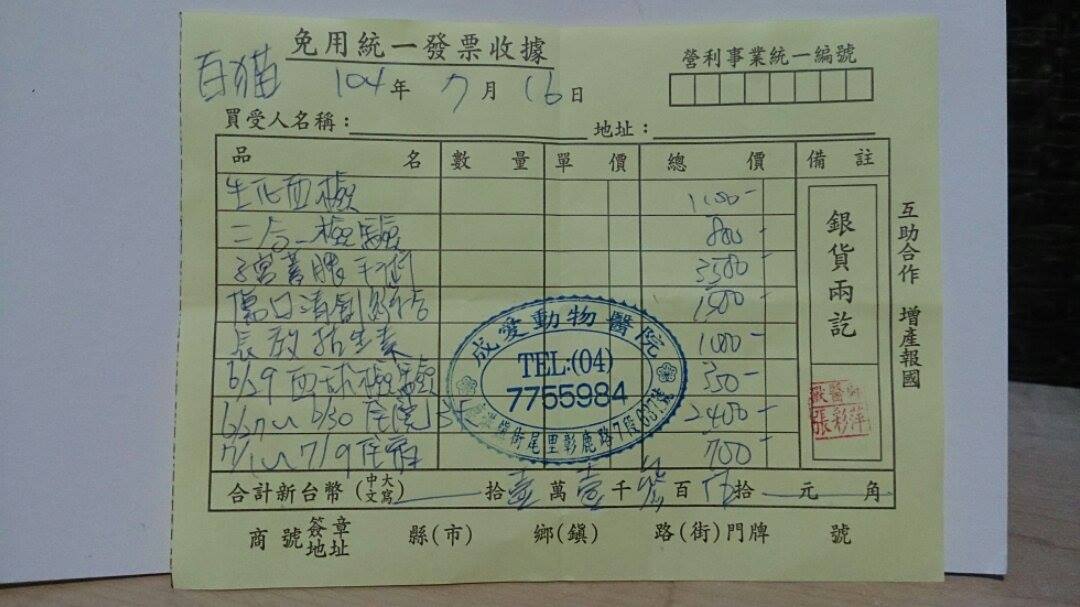 免用統一發票收據
營利事業統一編號
百猫 104年 7月 16日
買受人名稱: 地址:
品名 數量 單價 總價 備註
生化血檢
二合一檢驗 800-
子宮蓄膿手術 3500-
傷口清創縫合 1500-
長效抗生素 1000-
6/29 血球檢驗 350-
6/27~6/30 住院 2400-
7/1~7/9 住宿 700
銀貨兩訖
獸醫師
張彩萍
互助合作 增產報國
成愛動物醫院
TEL:(04)
7755984
街尾里彰鹿路7段
合計新台幣(中文大寫) 拾壹萬壹千 百伍拾 元 角
商號簽章地址 縣(市) 鄉(鎮) 路(街)門牌 號